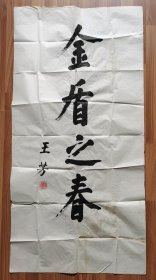 金盾之春
王芳